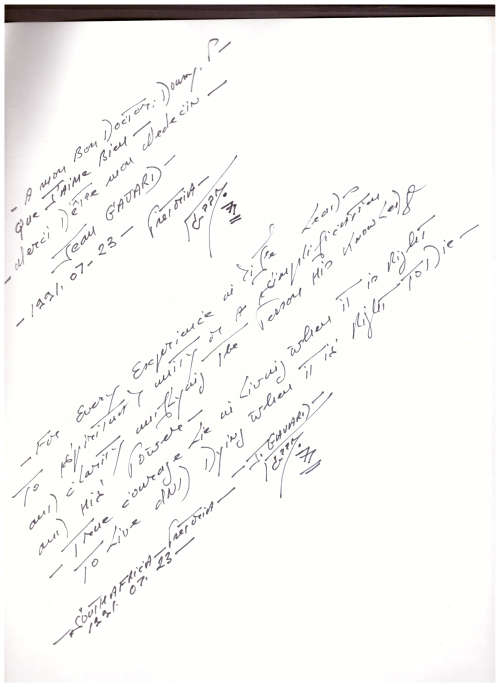 - A mon Bon Doctor. Doumy. P -
Que J'AIME BIEN -
- Merci D'être mon Medecin -
Jean GAVARD -
- 1991. 07 - 23 - PRETORIA -
- For Every Experience in Life Leads
To Spiritual unity is A Simplification
and clarity unifying The Person His Knowledge
and His Powers -
- True courage Lie in Living when iT is Right
To Live and Dying when iT is Right To Die -
- J. GAVARD -
- SOUTH AFRICA - PRETORIA -
- 1991. 07. 23 -